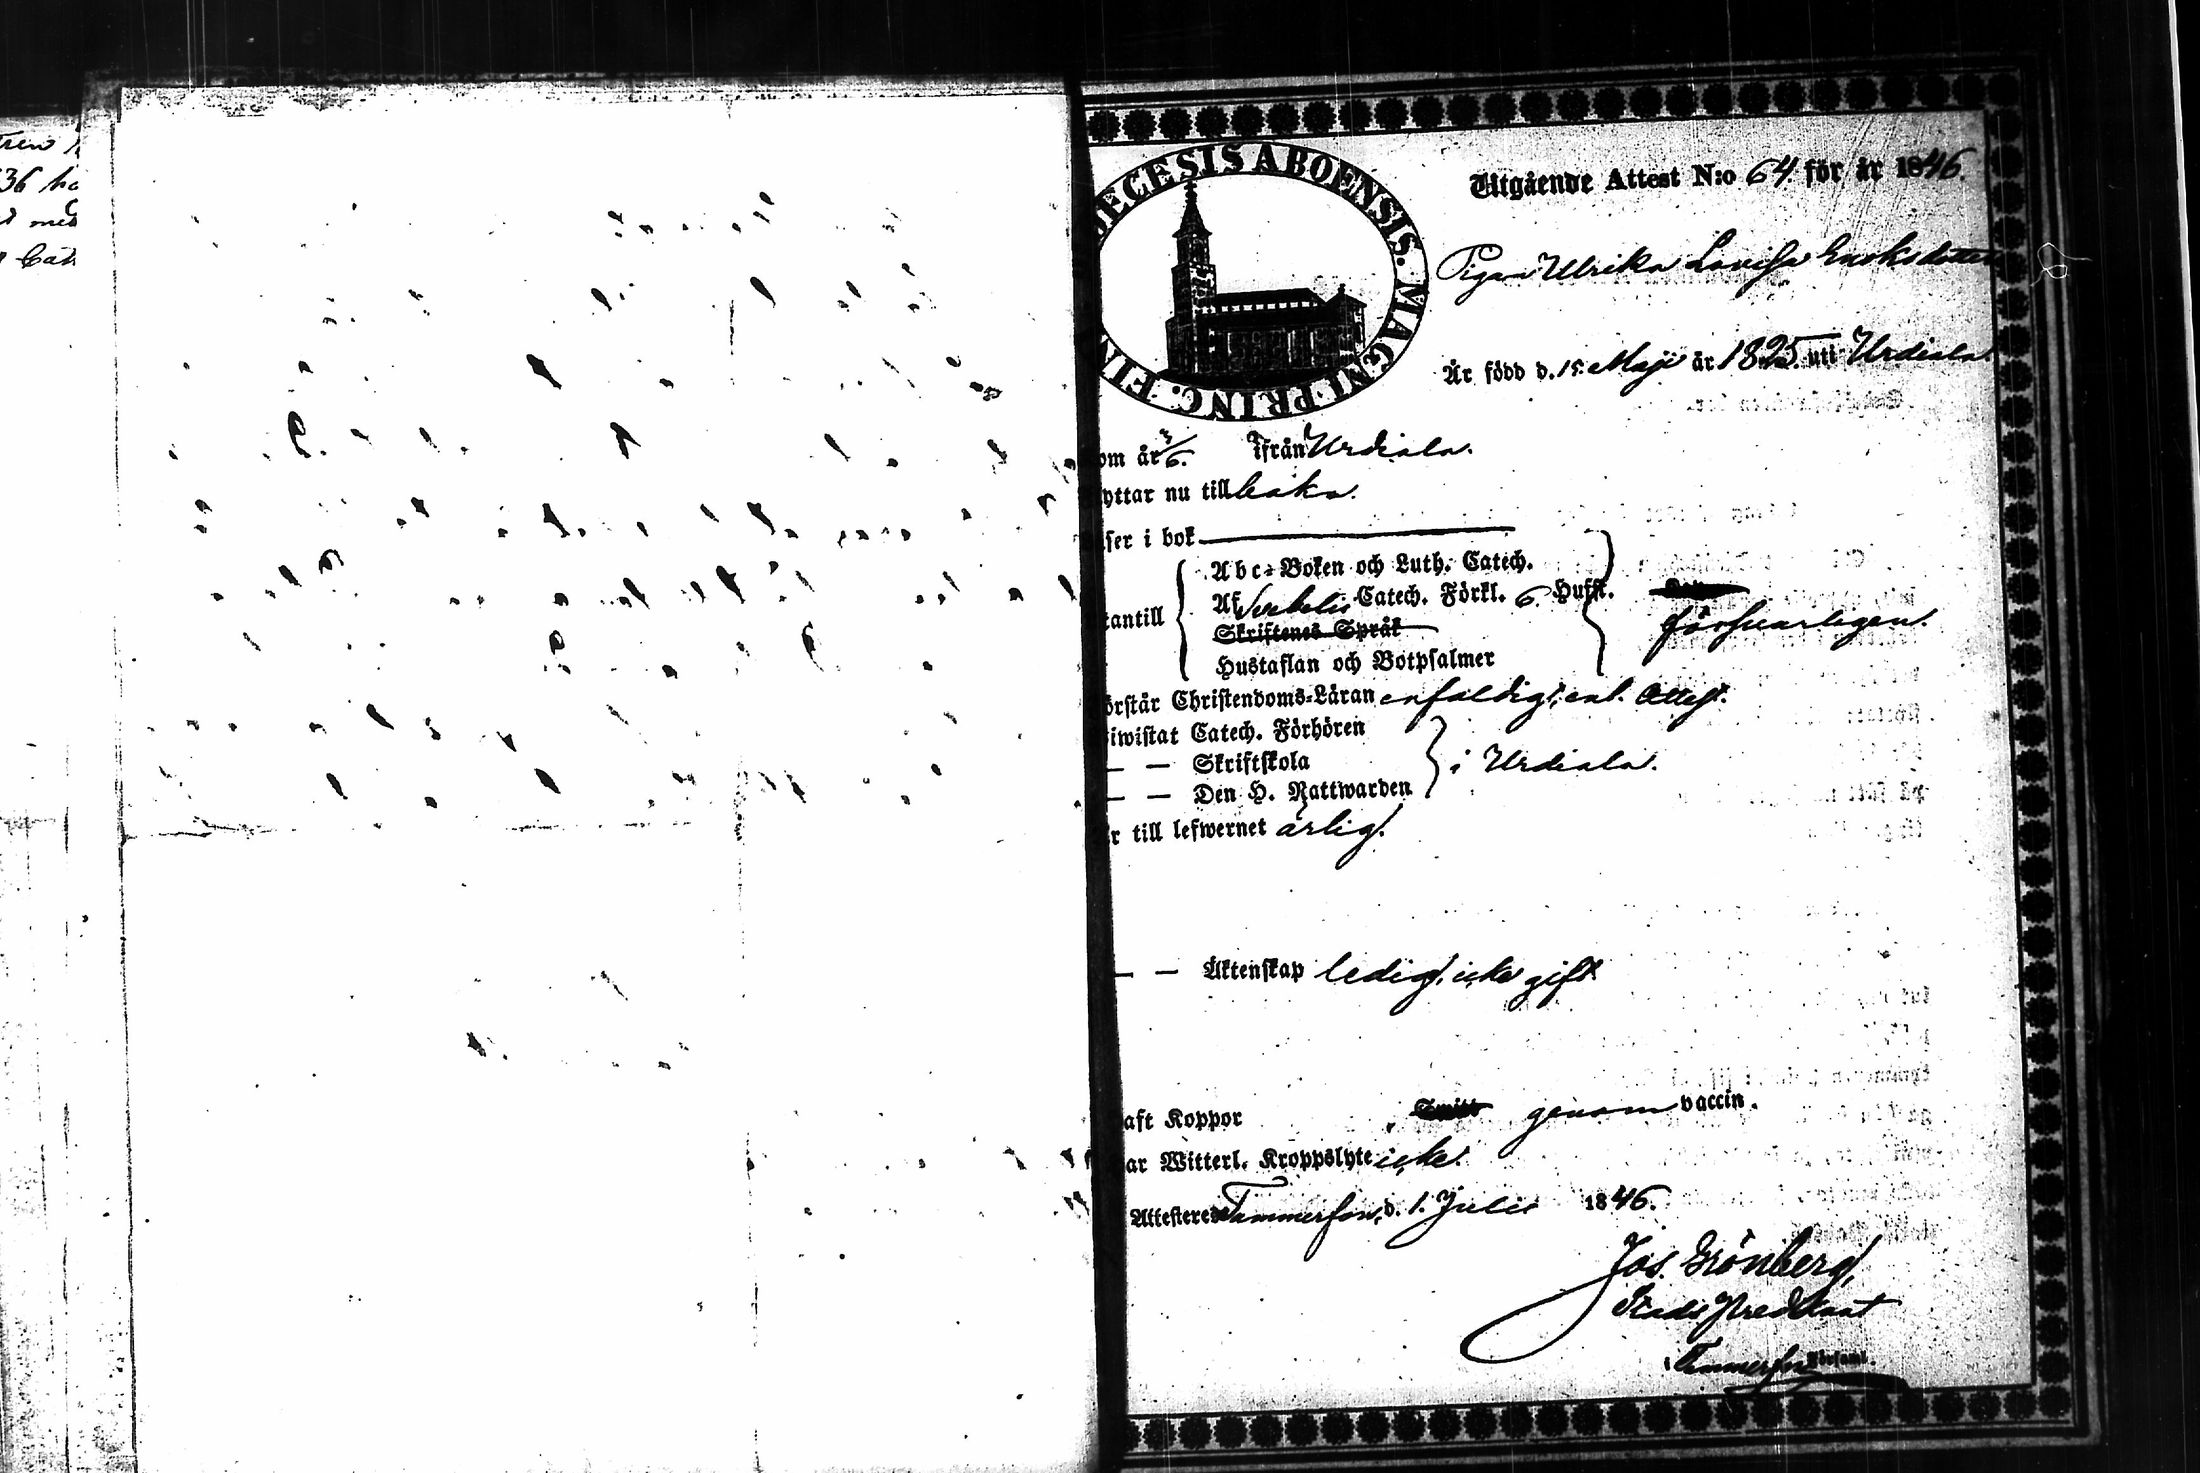 36
med
DIOECESIS ABOENSIS. MAGNI PRINC. FIN
Utgående Attest N:o 64 för år 1846.
Pigan Ulrika Lovisa Eriksdotter
Är född d. 15 Maji år 1825. uti Urdiala
om år 3/6. ifrån Urdiala.
yttar nu till baka.
äser i bok
Abc-Boken och Luth. Catech.
Af Svebelii Catech. Förkl. 6. Hufst.
utantill
Skriftenes Språk
försvarligen.
Hustaflan och Botpsalmer
örstår Christendoms-Läran enfaldigt, enl. Attest.
iwistat Catech. Förhören
— — Skriftskola
i Urdiala.
— — Den H. Nattwarden
r till lefwernet ärlig.
— — Äktenskap ledig, icke gift.
aft Koppor genom vaccin.
ar Witterl. Kroppslyte icke.
Attesteres Tammerfors, d. 1. Julii 1846.
Jos. Grönberg,
Stads Predikant
i Tammerfors Församl.